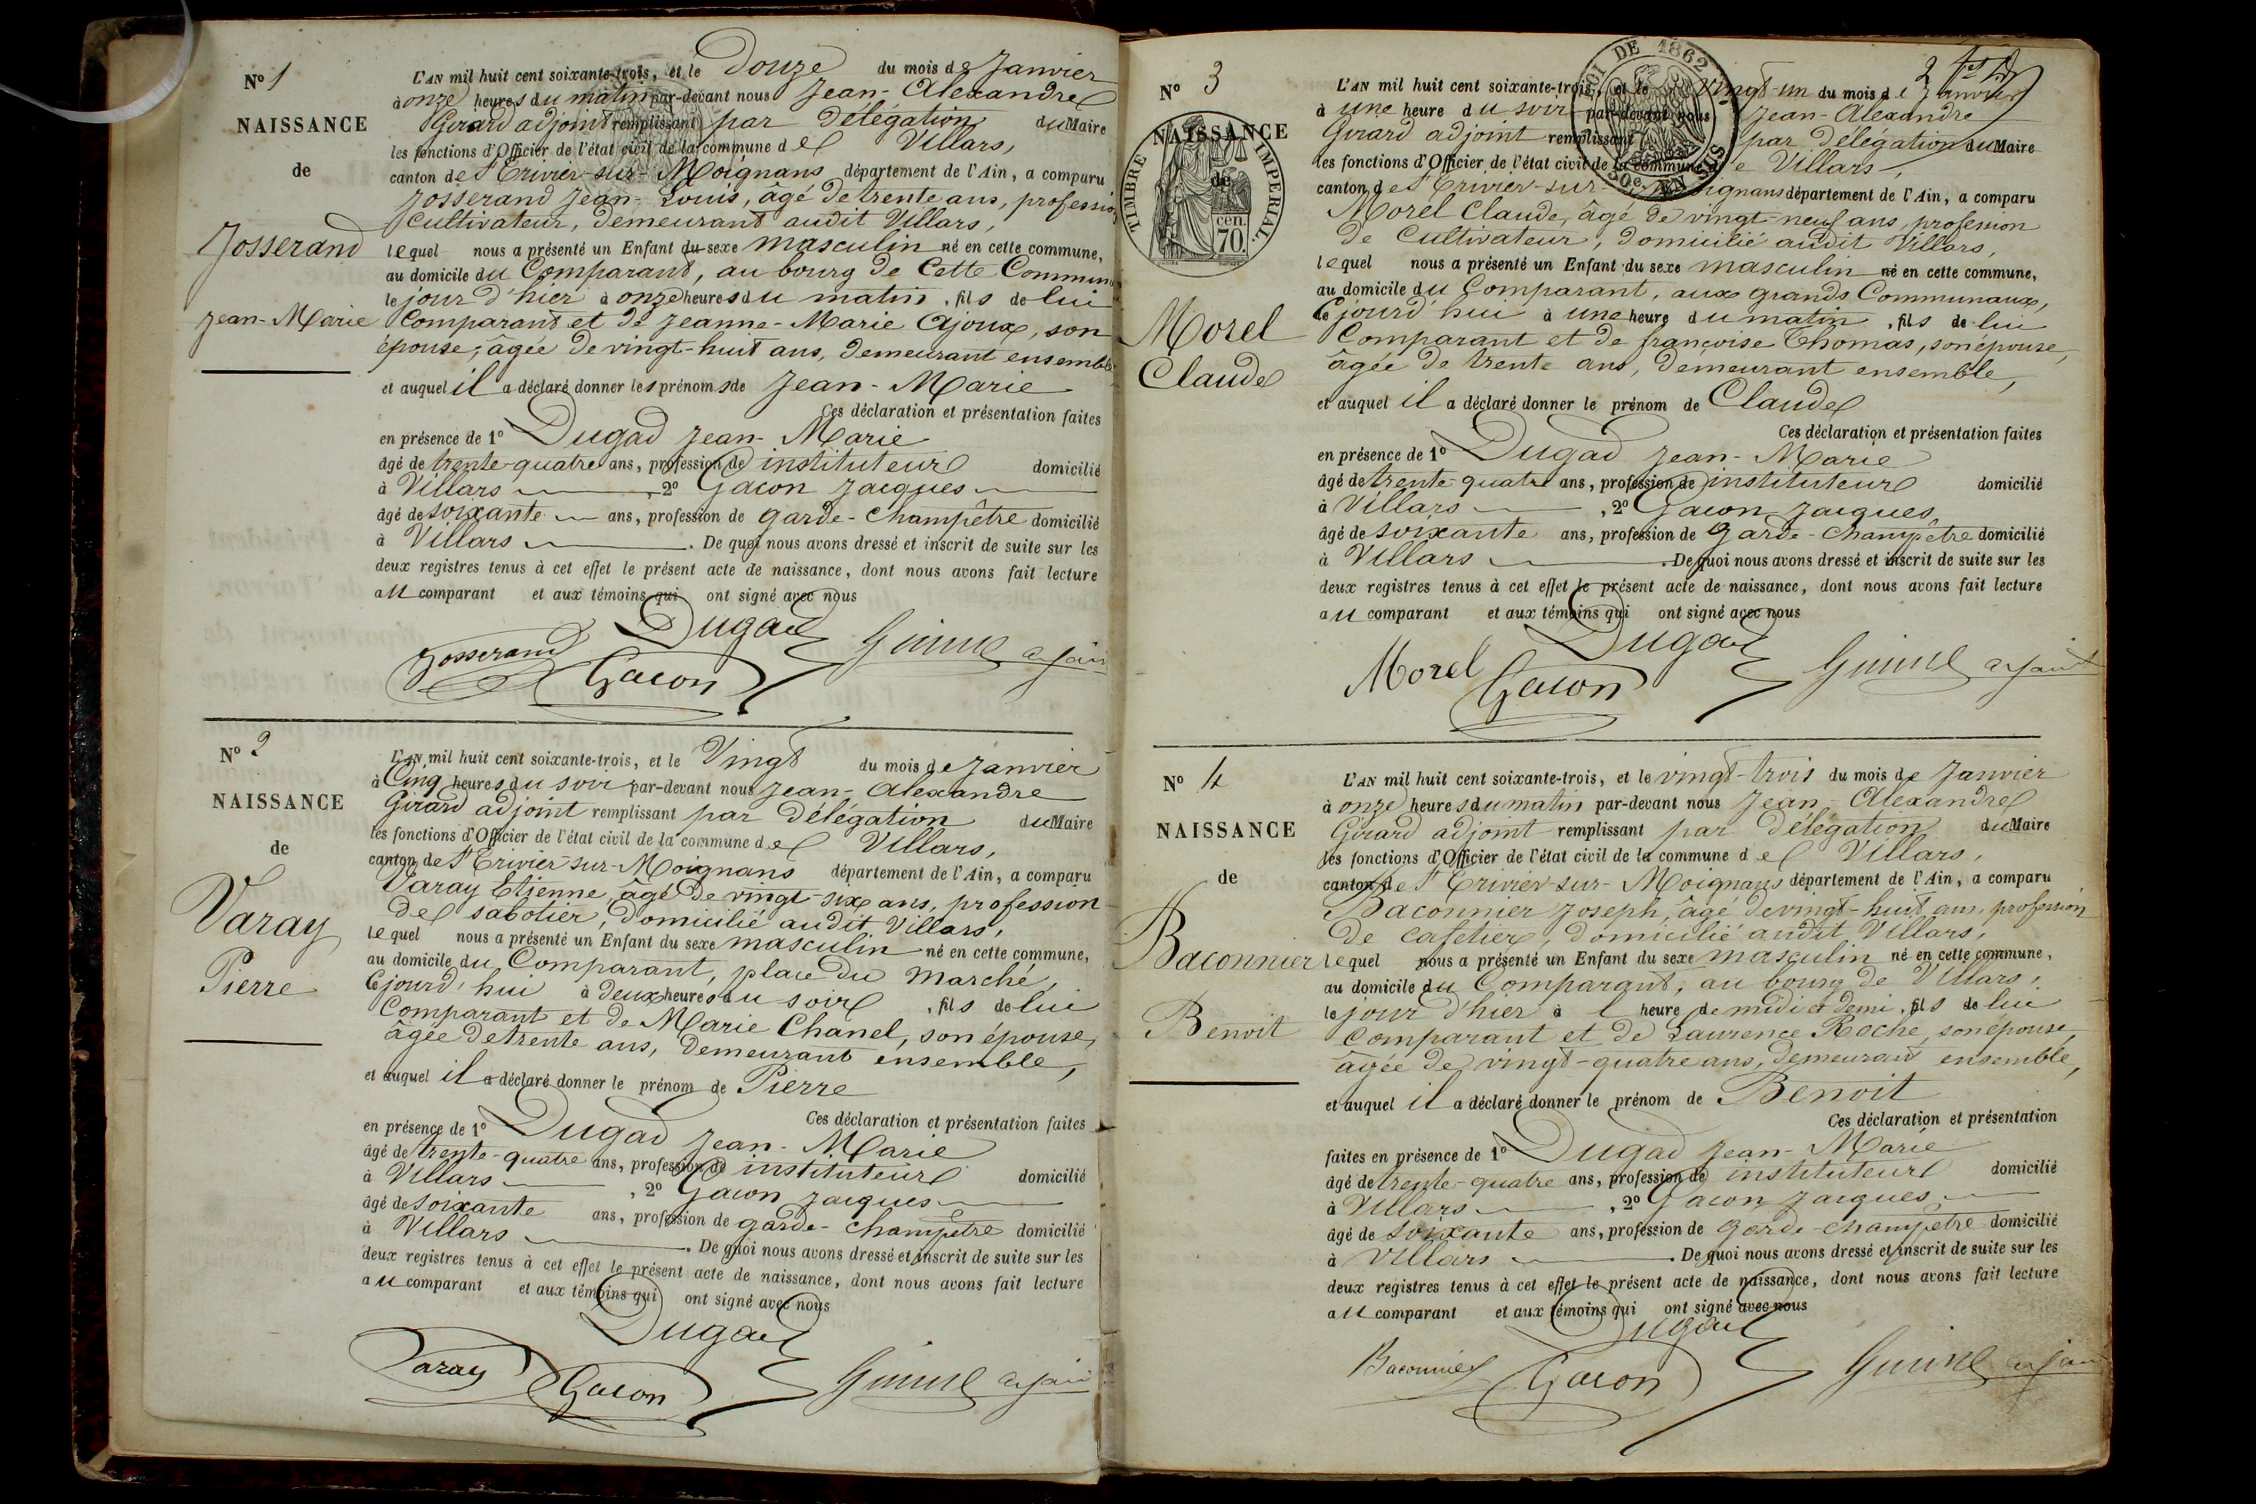 N° 1
NAISSANCE
de
Josserand
Jean-Marie
L'AN mil huit cent soixante-trois, et le Douze du mois de Janvier
à onze heures du matin par-devant nous Jean-Alexandre
Girard adjoint remplissant par délégation du Maire
les fonctions d'Officier de l'état civil de la commune de Villars,
canton de St Trivier-sur-Moignans département de l'Ain, a comparu
Josserand Jean-Louis, âgé de trente ans, profession
cultivateur, demeurant audit Villars,
lequel nous a présenté un Enfant du sexe masculin né en cette commune,
au domicile du Comparant, au bourg de cette Commune
le jour d'hier à onze heures du matin, fils de lui
Comparant et de Jeanne-Marie Ajoux, son
épouse, âgée de vingt-huit ans, demeurant ensemble
et auquel il a déclaré donner les prénoms de Jean-Marie
Ces déclaration et présentation faites
en présence de 1° Dugad Jean-Marie
âgé de trente-quatre ans, profession de instituteur domicilié
à Villars, 2° Gacon Jacques
âgé de soixante ans, profession de garde-champêtre domicilié
à Villars. De quoi nous avons dressé et inscrit de suite sur les
deux registres tenus à cet effet le présent acte de naissance, dont nous avons fait lecture
au comparant et aux témoins qui ont signé avec nous
Josserand Dugad Gacon adjoint
N° 2
NAISSANCE
de
Varay
Pierre
L'AN mil huit cent soixante-trois, et le Vingt du mois de Janvier
à Cinq heures du soir par-devant nous Jean-Alexandre
Girard adjoint remplissant par délégation du Maire
les fonctions d'Officier de l'état civil de la commune de Villars,
canton de St Trivier-sur-Moignans département de l'Ain, a comparu
Varay Etienne, âgé de vingt-six ans, profession
de sabotier, domicilié audit Villars,
lequel nous a présenté un Enfant du sexe masculin né en cette commune,
au domicile du Comparant, place du Marché,
Cejourd'hui à deux heures du soir, fils de lui
Comparant et de Marie Chanel, son épouse,
âgée de trente ans, demeurant ensemble,
et auquel il a déclaré donner le prénom de Pierre
Ces déclaration et présentation faites
en présence de 1° Dugad Jean-Marie
âgé de trente-quatre ans, profession de instituteur domicilié
à Villars, 2° Gacon Jacques
âgé de soixante ans, profession de garde-champêtre domicilié
à Villars. De quoi nous avons dressé et inscrit de suite sur les
deux registres tenus à cet effet le présent acte de naissance, dont nous avons fait lecture
au comparant et aux témoins qui ont signé avec nous
Varay Dugad Gacon adjoint
N° 3
NAISSANCE
de
TIMBRE IMPERIAL
70 cen.
LOI DE 1862
Morel
Claude
L'AN mil huit cent soixante-trois, et le Vingt-un du mois de Janvier
à une heure du soir par-devant nous Jean-Alexandre
Girard adjoint remplissant par délégation du Maire
les fonctions d'Officier de l'état civil de la commune de Villars,
canton de St Trivier-sur-Moignans département de l'Ain, a comparu
Morel Claude, âgé de vingt-neuf ans, profession
de Cultivateur, domicilié audit Villars,
lequel nous a présenté un Enfant du sexe masculin né en cette commune,
au domicile du Comparant, aux grands Communaux,
Cejourd'hui à une heure du matin, fils de lui
Comparant et de françoise Thomas, son épouse,
âgée de trente ans, demeurant ensemble,
et auquel il a déclaré donner le prénom de Claude
Ces déclaration et présentation faites
en présence de 1° Dugad Jean-Marie
âgé de trente-quatre ans, profession de instituteur domicilié
à Villars, 2° Gacon Jacques
âgé de soixante ans, profession de garde-champêtre domicilié
à Villars. De quoi nous avons dressé et inscrit de suite sur les
deux registres tenus à cet effet le présent acte de naissance, dont nous avons fait lecture
au comparant et aux témoins qui ont signé avec nous
Morel Dugad Gacon adjoint
N° 4
NAISSANCE
de
Baconnier
Benoit
L'AN mil huit cent soixante-trois, et le vingt-trois du mois de Janvier
à onze heures du matin par-devant nous Jean-Alexandre
Girard adjoint remplissant par délégation du Maire
les fonctions d'Officier de l'état civil de la commune de Villars,
canton de St Trivier-sur-Moignans département de l'Ain, a comparu
Baconnier Joseph, âgé de vingt-huit ans, profession
de cafetier, domicilié audit Villars,
lequel nous a présenté un Enfant du sexe masculin né en cette commune,
au domicile du Comparant, au bourg de Villars,
le jour d'hier à l heure de midi et demi, fils de lui
Comparant et de Laurence Roche, son épouse,
âgée de vingt-quatre ans, demeurant ensemble,
et auquel il a déclaré donner le prénom de Benoit
Ces déclaration et présentation
faites en présence de 1° Dugad Jean-Marie
âgé de trente-quatre ans, profession de instituteur domicilié
à Villars, 2° Gacon Jacques
âgé de soixante ans, profession de garde-champêtre domicilié
à Villars. De quoi nous avons dressé et inscrit de suite sur les
deux registres tenus à cet effet le présent acte de naissance, dont nous avons fait lecture
au comparant et aux témoins qui ont signé avec nous
Baconnier Dugad Gacon adjoint